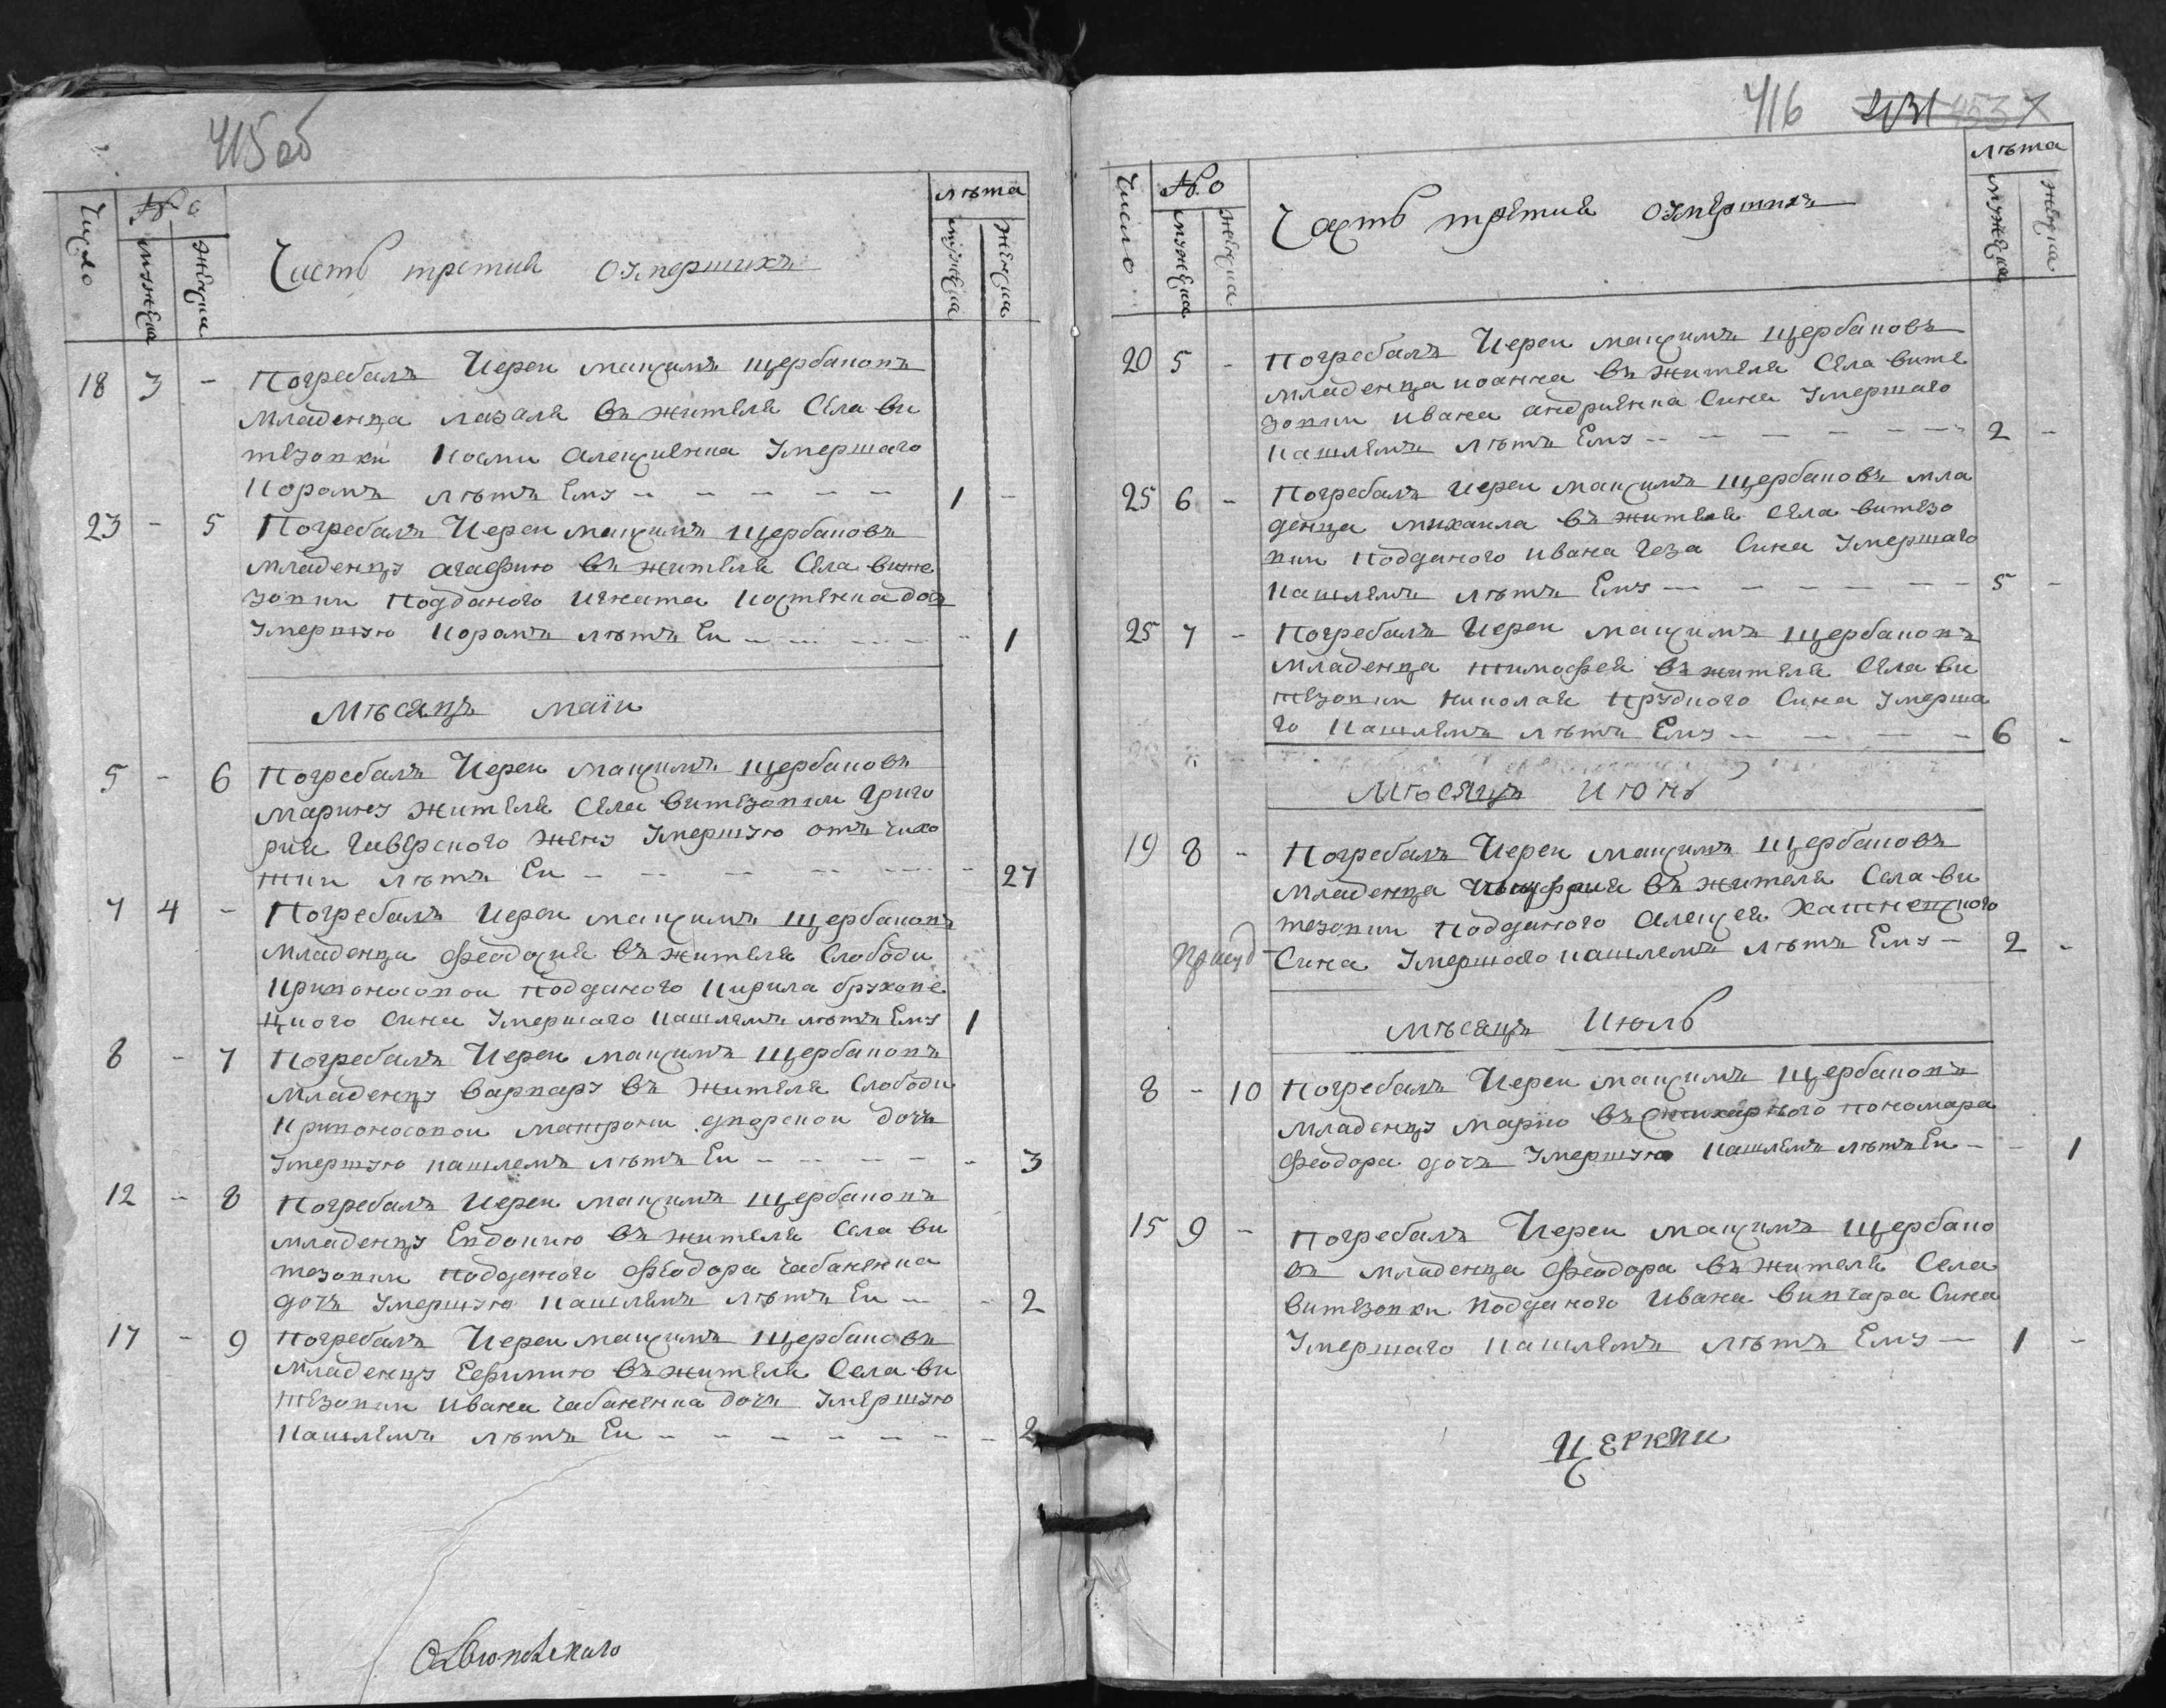 415 об
Число № мужеска женска Часть третия о умершихъ лѣта мужеска женска
18 3 - Погребалъ Иереи Максимъ Щербаковъ
младенца Лазаря въ жителя Села Ви
тезовки Космы Алексиенка Умершаго
Коромъ лѣтъ Ему - - - - - 1 -
23 - 5 Погребалъ Иереи Максимъ Щербаковъ
младенцу Агафию въ жителя Села Вите
зовки Подданого Игната Костенка дочь
Умершую Коромъ лѣтъ Еи - - - - 1
Мѣсяцъ Маїи
5 - 6 Погребалъ Иереи Максимъ Щербаковъ
Марину жителя Села Витезовки Григо
рия Сиверского жену Умершую отъ чихо
тки лѣтъ Еи - - - - - 27
7 4 - Погребалъ Иереи Максимъ Щербаковъ
младенца Феодосия въ жителя Слободи
Кривоносовои Подданого Кирила
цкого Сина Умершаго Кашлемъ лѣтъ Ему 1
8 - 7 Погребалъ Иереи Максимъ Щербаковъ
младенцу Варвару въ жителя Слободи
Кривоносовои Матрони дворскои дочь
Умершую Кашлемъ лѣтъ Еи - - - - - 3
12 - 8 Погребалъ Иереи Максимъ Щербаковъ
младенцу Евдокию въ жителя Села Ви
тезовки Подданого Феодора Чабаненка
дочь Умершую Кашлемъ лѣтъ Еи - - 2
17 - 9 Погребалъ Иереи Максимъ Щербаковъ
младенцу Ефимию въ жителя Села Ви
тезовки Ивана Чабаненка дочь Умершую
Кашлемъ лѣтъ Еи - - - - - - - 2
416
Число № мужеска женска Часть третия о умершихъ лѣта мужеска женска
20 5 - Погребалъ Иереи Максимъ Щербаковъ
младенца Иоанна въ жителя Села Вите
зовки Ивана Андриенка Сина Умершаго
Кашлемъ лѣтъ Ему - - - - - - 2 -
25 6 - Погребалъ Иереи Максимъ Щербаковъ мла
денца Михаила въ жителя Села Витезо
вки Подданого Ивана Сина Умершаго
Кашлемъ лѣтъ Ему - - - - - - 5 -
25 7 - Погребалъ Иереи Максимъ Щербаковъ
младенца Тимофея въ жителя Села Ви
тезовки Николая Прудкого Сина Умерша
го Кашлемъ лѣтъ Ему - - - - 6 -
Мѣсяцъ Июнь
19 8 - Погребалъ Иереи Максимъ Щербаковъ
младенца въ жителя Села Ви
тезовки Подданого Алексея
Сина Умершаго Кашлемъ лѣтъ Ему - 2 -
Мѣсяцъ Июль
8 - 10 Погребалъ Иереи Максимъ Щербаковъ
младенцу Марию въ пономара
Феодора дочь Умершую Кашлемъ лѣтъ Еи - - 1
15 9 - Погребалъ Иереи Максимъ Щербако
въ младенца Феодора въ жителя Села
Витезовки Подданого Ивана Сина
Умершаго Кашлемъ лѣтъ Ему - 1 -
Церкви